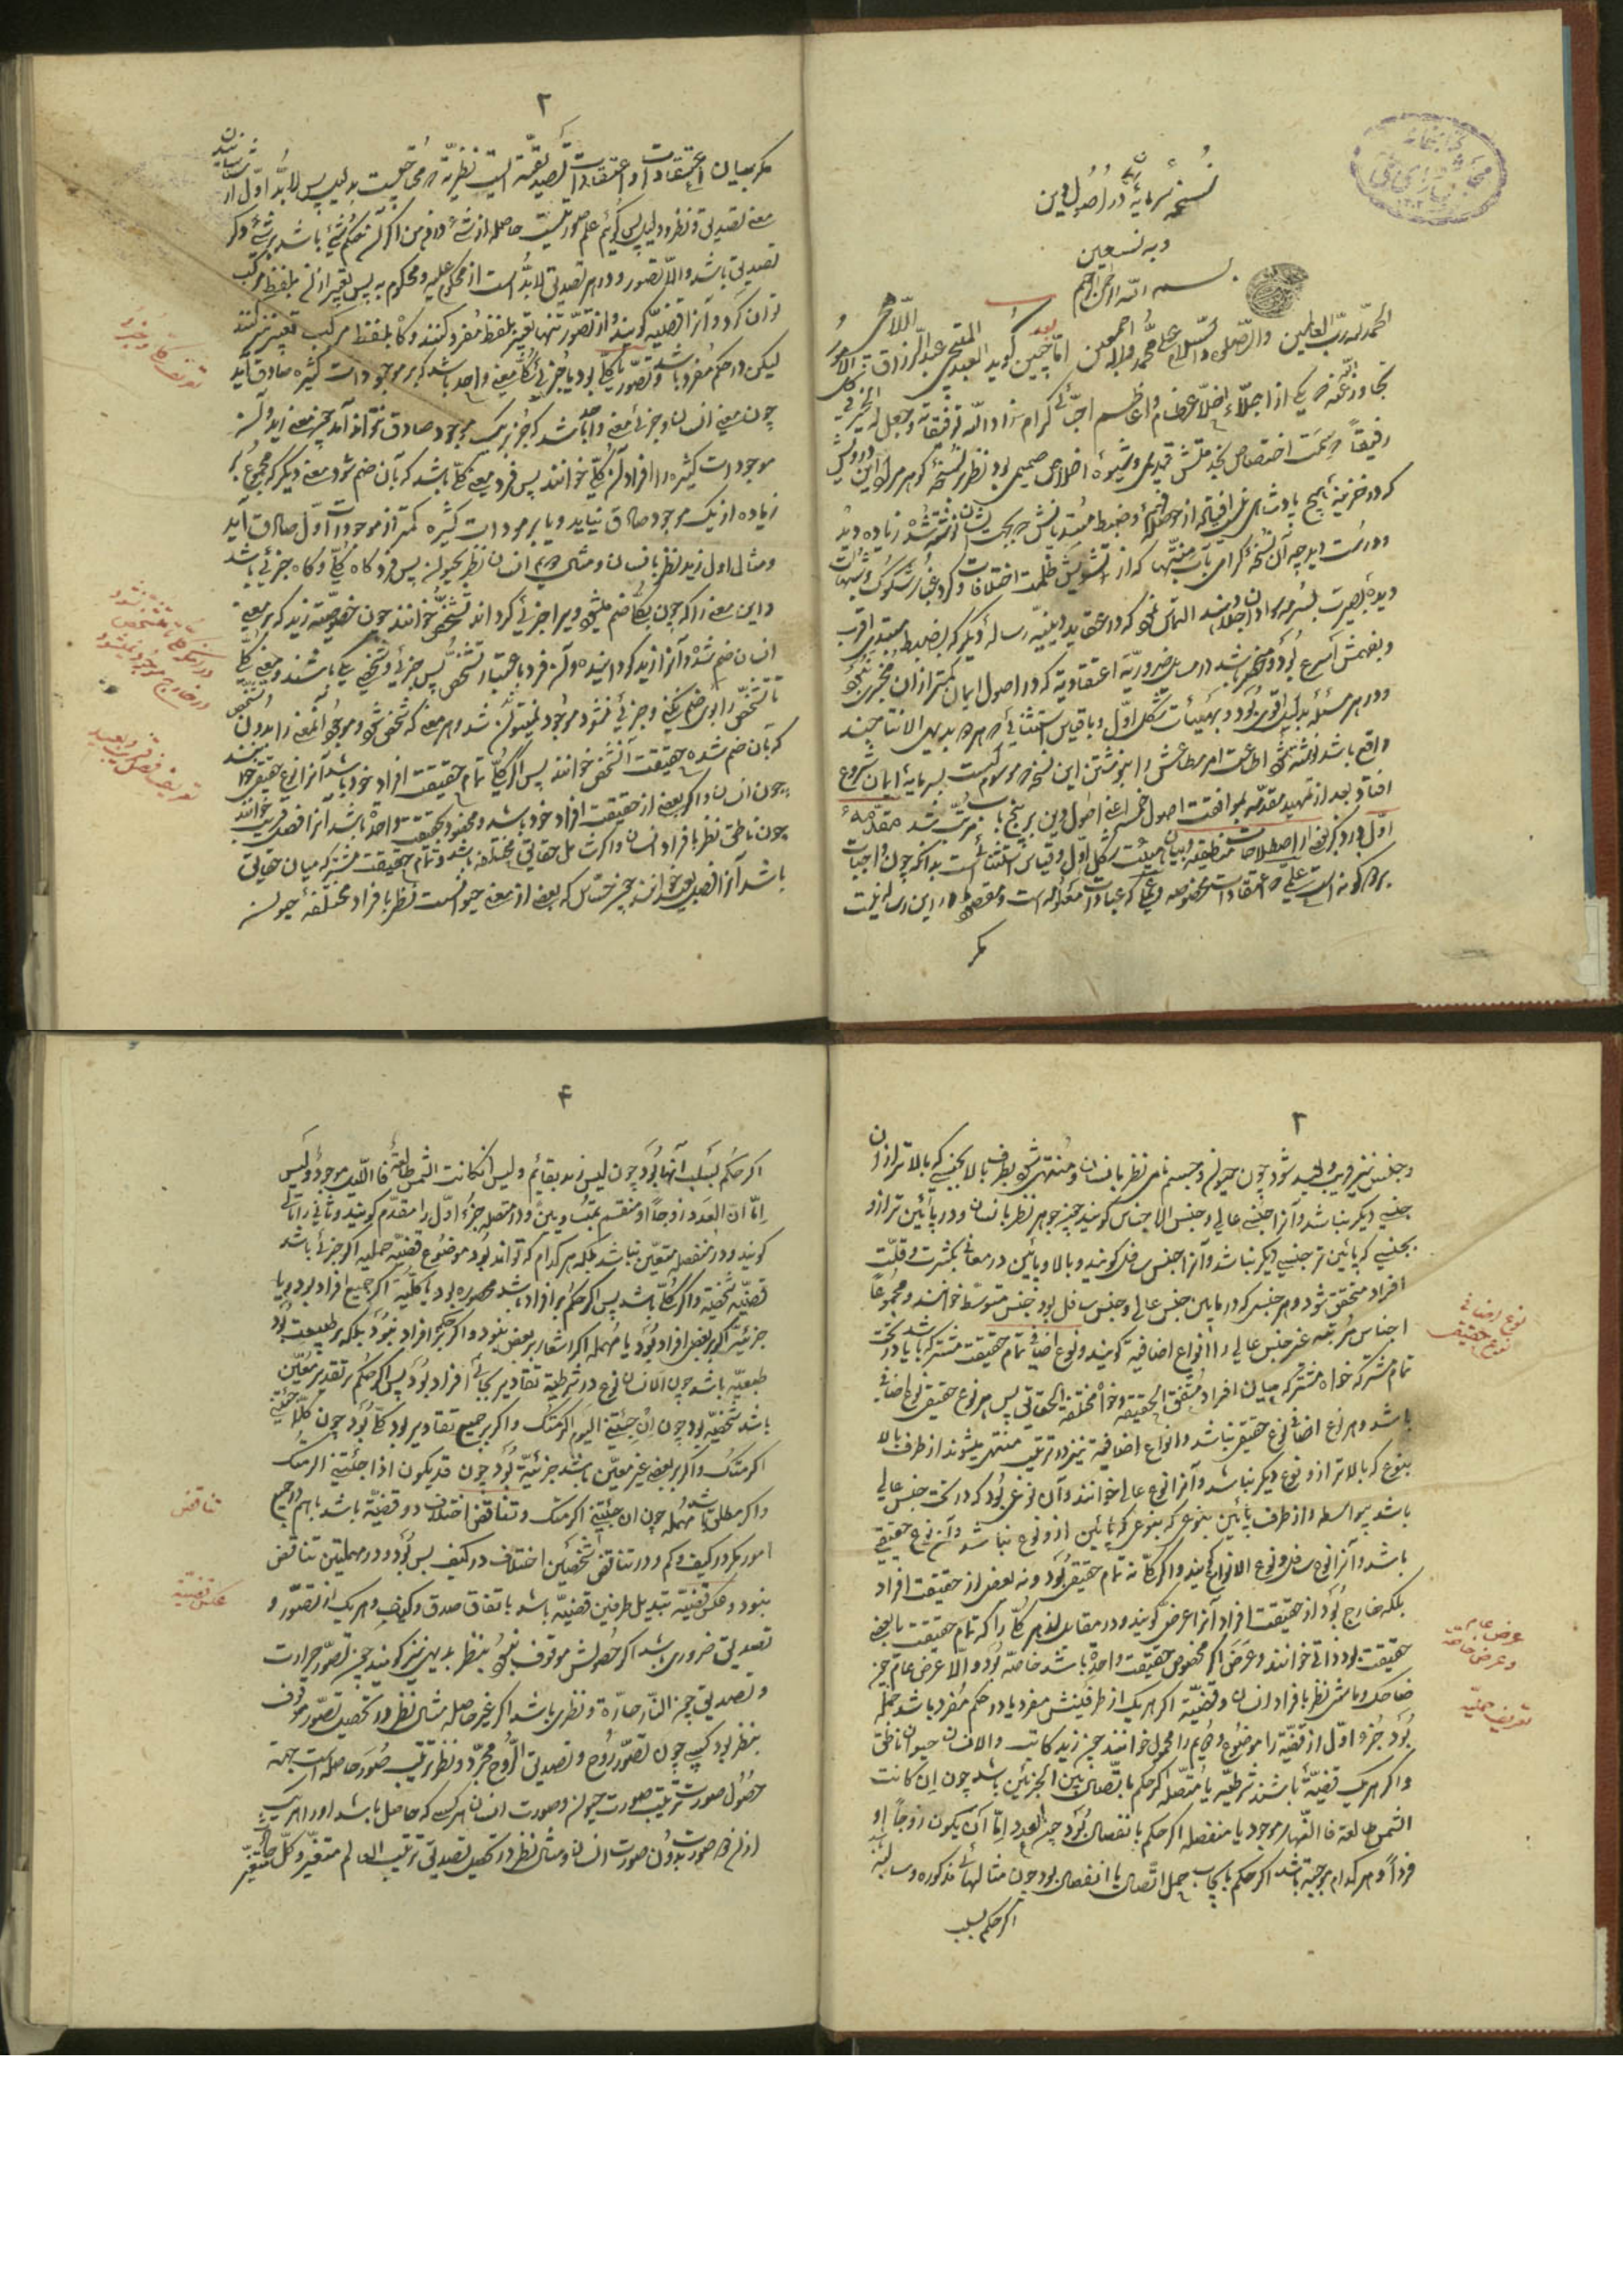 نسخهٔ سرمایهٔ در اصول دین
وبه نستعین
بسم الله الرحمن الرحیم
الحمد لله رب العالمین والصلوة والسلام علی محمد واله اجمعین اما بعد چنین کوید العبد عبد الرزاق اللاهجی
تجاوز الله عنه که یکی از اجلاء اخلاء عظام و اعاظم احبای کرام زاد الله توفیقاته وجعل الخیر فی کل الامور
رفیقاً که سمت اختصاص بخدمتش قدیمی و شیوه اخلاص صمیمی بود نظر بر نسخهٔ کوهر مراد این درویش
که در خزینه هیچ پادشاهی از حوصلهٔ فهم و ضبط مبتدیانش زیاده دید
ودرست دید چه آن نسخهٔ کرامی که از تشویش ظلمت اختلافات و کرد غبار شکوک و شبهات
دیده بصیرت التماس نمود که در عقاید دینیه رساله دیکر که بضبط مبتدی اقرب
وبفهمش اسرع بود و منحصر باشد در مسایل ضروریه اعتقادیه که در اصول ایمان کمتر از آن مجزی نبود
ودر هر مسئله بدلیل اقوی بود و بهیئات شکل اول ویا قیاس استثنائی که هر دو بدیهی الانتاجند
واقع باشد اطاعت امر مطاعش را بنوشتن این نسخه که موسوم است بسرمایهٔ ایمان شروع
افتاد و بعد از تمهید مقدمه بموافقت اصول خمسه اعنی اصول دین بر پنج باب مرتب شد مقدمه
در ذکر بعضی از اصطلاحات منطقیه و بیان هیئت شکل اول و قیاس استثنائی است بدانکه چون واجبات
بر دو کونه است علمی که اعتقادات مخصوصه و عملی که عبادات مقرره است و مقصود در این رساله نیست
مکر
۲
مکر بیان اعتقادات و اعتقادات تصدیقیه است نظریه که محتاجست بدلیل پس لابد اول از شناختن
معنی تصدیق و نظر و دلیل پس کوئیم علم صورتیست حاصله از شئ در ذهن اکر آن حکم بشئ باشد بر شئ دیکر
تصدیق باشد والا تصور و در هر تصدیق لابد است از محکوم علیه و محکوم به پس تعبیر از آن بلفظ مرکب
توان کرد و آنرا قضیه کویند و از تصور تنها تعبیر بلفظ مفرد کنند و کاه بلفظ مرکب تعبیر نیز کنند
لیکن در حکم مفرد باشد و تصور یا کلی بود یا جزئی کلی معنی واحد باشد که بر موجودات کثیره صادق آید
چون معنی انسان و جزئی معنی واحد باشد که جز بر یک موجود صادق نتواند آمد چون معنی زید و آن
موجودات کثیره را افراد آن کلی خوانند پس فرد معنی کلی باشد که بآن ضم شود معنی دیکر که مجموع بر
زیاده از یک موجود صادق نیاید و یا بر موجودات کثیره کمتر از موجودات اول صادق آید
ومثال اول زید نظر بانسان و مثال دویم انسان نظر بحیوان پس فرد کاه کلی و کاه جزئی باشد
واین معنی را که چون بکلی ضم میشود ویرا جزئی کرداند تشخص خوانند چون خصوصیت زید که بر معنی
انسان ضم شده و آنرا زید کردانیده و آن فرد باعتبار تشخص پس جزئی و شخص یکی باشند و معنی کلی
تا تشخص را بوی ضم نکنی و جزئی نشود موجود نمیتواند شد و هر معنی که شخص شود و موجود آن معنی را بدون تشخص
که بآن ضم شده حقیقت آن شخص خوانند پس اکر کلی تمام حقیقت افراد خود باشد آنرا نوع حقیقی خوانند
چون انسان و اکر بعضی از حقیقت افراد خود باشد و مخصوص بحقیقت واحده باشد آنرا فصل قریب خوانند
چون ناطق نظر بافراد انسان و اکر شامل حقایق مختلفه باشد و تمام حقیقت مشترکه میان حقایق
باشد آنرا جنس خوانند چون حساس که بعضی از معنی حیوانست نظر بافراد مختلفهٔ حیوان
تعریف کلی و جزئی
در آنکه کلی تا متشخص نشود
در خارج موجود نمیشود
تعریف فصل قریب و بعید
۳
وجنس نیز قریب و بعید شود چون حیوان و جسم نامی نظر بانسان و منتهی شود بطرف بالا بجنسی که بالاتر از آن
جنسی دیکر نباشد و آنرا جنس عالی و جنس الاجناس کویند چون جوهر نظر بانسان و در پائین تر از او
بجنسی که پائین تر جنسی دیکر نباشد و آنرا جنس سافل کویند و بالا و پائین در معانی بکثرت و قلت
افراد متحقق شود و هر جنس که در مابین جنس عالی و جنس سافل بود جنس متوسط خوانند و مجموع
اجناس مترتبه غیر جنس عالی را انواع اضافیه کویند و نوع اضافی تمام حقیقت مشترکه باشد یا در تحت
تمام مشترکه خواه مشترکه میان افراد متفق الحقیقه و خواه مختلفة الحقایق پس هر نوع حقیقی نوع اضافی
باشد و هر نوع اضافی نوع حقیقی نباشد و انواع اضافیه نیز در ترتیب منتهی میشوند از طرف بالا
بنوعی که بالاتر از او نوع دیکر نباشد و آنرا نوع عالی خوانند و آن نوعی بود که در تحت جنس عالی
باشد بیواسطه و از طرف پائین بنوعی که پائین از او نوع نباشد و آن نوع حقیقی
باشد و آنرا نوع سافل و نوع الانواع کویند و اکر کلی نه تمام حقیقت بود و نه بعضی از حقیقت افراد
بلکه خارج بود از حقیقت افراد آنرا عرضی کویند و در مقابل آن هر کلی را که تمام حقیقت یا بعضی
حقیقت بود ذاتی خوانند و عرضی اکر مخصوص حقیقت واحده باشد خاصه بود و الا عرض عام چون
ضاحک و ماشی نظر بافراد انسان و قضیه اکر هر یک از طرفینش مفرد یا در حکم مفرد باشد حملیه
بود جزء اول از قضیه را موضوع و دویم را محمول خوانند چون زید کاتب و الانسان حیوان ناطق
واکر هر یک قضیه باشند شرطیه یا متصله اکر حکم باتصال بین الجزئین باشد چون ان کانت
الشمس طالعة فالنهار موجود یا منفصله اکر حکم بانفصال بود چون العدد اما ان یکون زوجاً او
فرداً و هر کدام موجبه باشد اکر حکم بایجاب حمل اتصال یا انفصال بود چون مثالهای مذکوره و سالبه
اکر حکم بسلب
نوع اضافی
نوع حقیقی
عرض عام
وعرض خاصه
تعریف حملیه
۴
اکر حکم بسلب آنها بود چون لیس زید بقائم و لیس ان کانت الشمس طالعة فاللیل موجود و لیس
اما ان العدد زوجاً او منقسم بمتساویین و در متصله جزء اول را مقدم کویند و ثانی را تالی
کویند و در منفصله متعین نباشد بلکه هر کدام که تواند بود و موضوع قضیه حملیه اکر جزئی باشد
قضیه شخصیه و اکر کلی باشد پس اکر حکم بر افراد باشد محصوره بود یا کلیه اکر جمیع افراد بود و یا
جزئیه اکر بر بعض افراد بود یا مهمله اکر اشعار ببعض نبود و اکر حکم بر افراد نبود بلکه بر طبیعت بود
طبیعیه باشد چون الانسان نوع و در شرطیه تقادیر بجای افراد بود پس اکر حکم بر تقدیر معین
باشد شخصیه بود چون ان جئتنی الیوم اکرمتک و اکر بر جمیع تقادیر بود کلیه بود چون کلما جئتنی
اکرمتک و اکر بر بعض غیر معین باشد جزئیه بود چون قد یکون اذا جئتنی اکرمتک
واکر مطلق باشد مهمله چون ان جئتنی اکرمتک و تناقض اختلاف دو قضیه باشد باهم در جمیع
امور مکر در کیف و کم و در تناقض شخصیتین اختلاف در کیف بس بود و در مهملتین تناقض
نبود و عکس قضیه تبدیل طرفین قضیه باشد باتفاق صدق و کیف و هر یک از تصور و
تصدیق ضروری باشد اکر حصولش موقوف نبود بنظر و بدیهی نیز کویند چون تصور حرارت
وتصدیق چون النار حارة و نظری باشد اکر غیر حاصله مثال نظر در تحصیل تصور موقوف
بنظر بود کسبی چون تصور روح و تصدیق الروح مجرد و نظر ترتیب صور حاصله است بجهة
حصول صورت ترتیب صورت حیوان و صورت انسان هر کسی که حاصل باشد او را
از آن صورت بدون صورت انسان و مثال نظر در تحصیل تصدیق ترتیب العالم متغیر و کل متغیر
تناقض
عکس قضیه